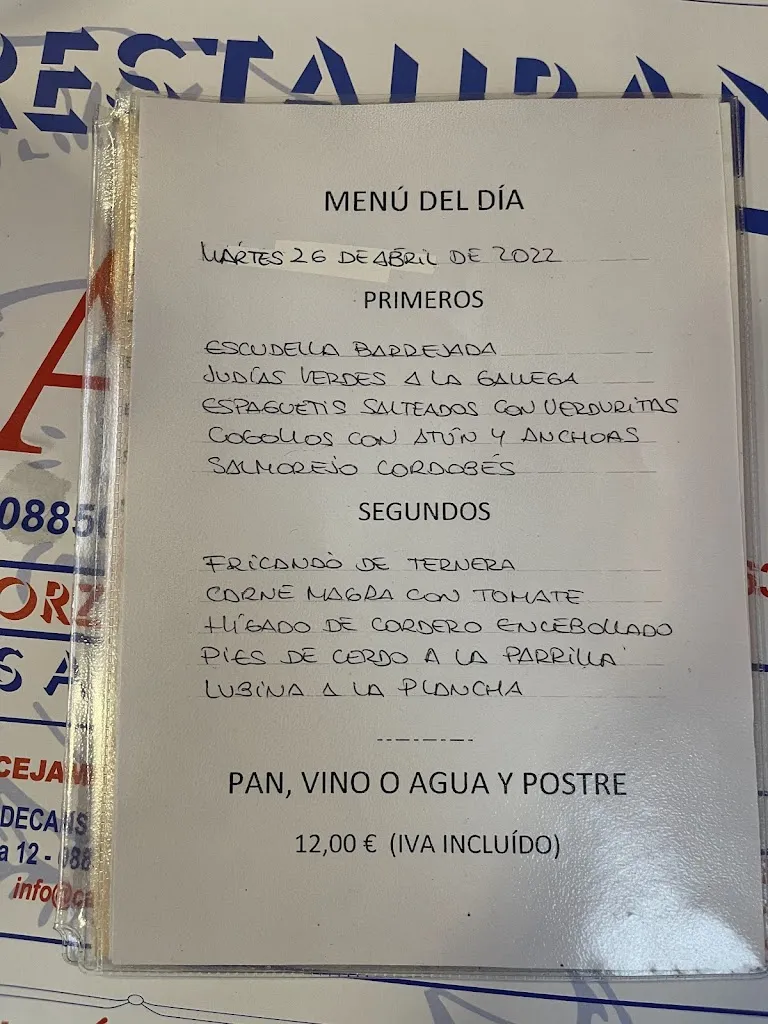 RESTAURAN
MENÚ DEL DÍA
MARTES 26 DE ABRIL DE 2022
PRIMEROS
ESCUDELLA BARREJADA
JUDÍAS VERDES A LA GALLEGA
ESPAGUETIS SALTEADOS CON VERDURITAS
COGOLLOS CON ATÚN Y ANCHOAS
SALMOREJO CORDOBÉS
SEGUNDOS
FRICANDÓ DE TERNERA
CARNE MAGRA CON TOMATE
HÍGADO DE CORDERO ENCEBOLLADO
PIES DE CERDO A LA PARRILLA
LUBINA A LA PLANCHA
PAN, VINO O AGUA Y POSTRE
12,00 € (IVA INCLUÍDO)
A
0885
ORZ
S A
CEJAM
DECANS
a 12 - 088
info@ca